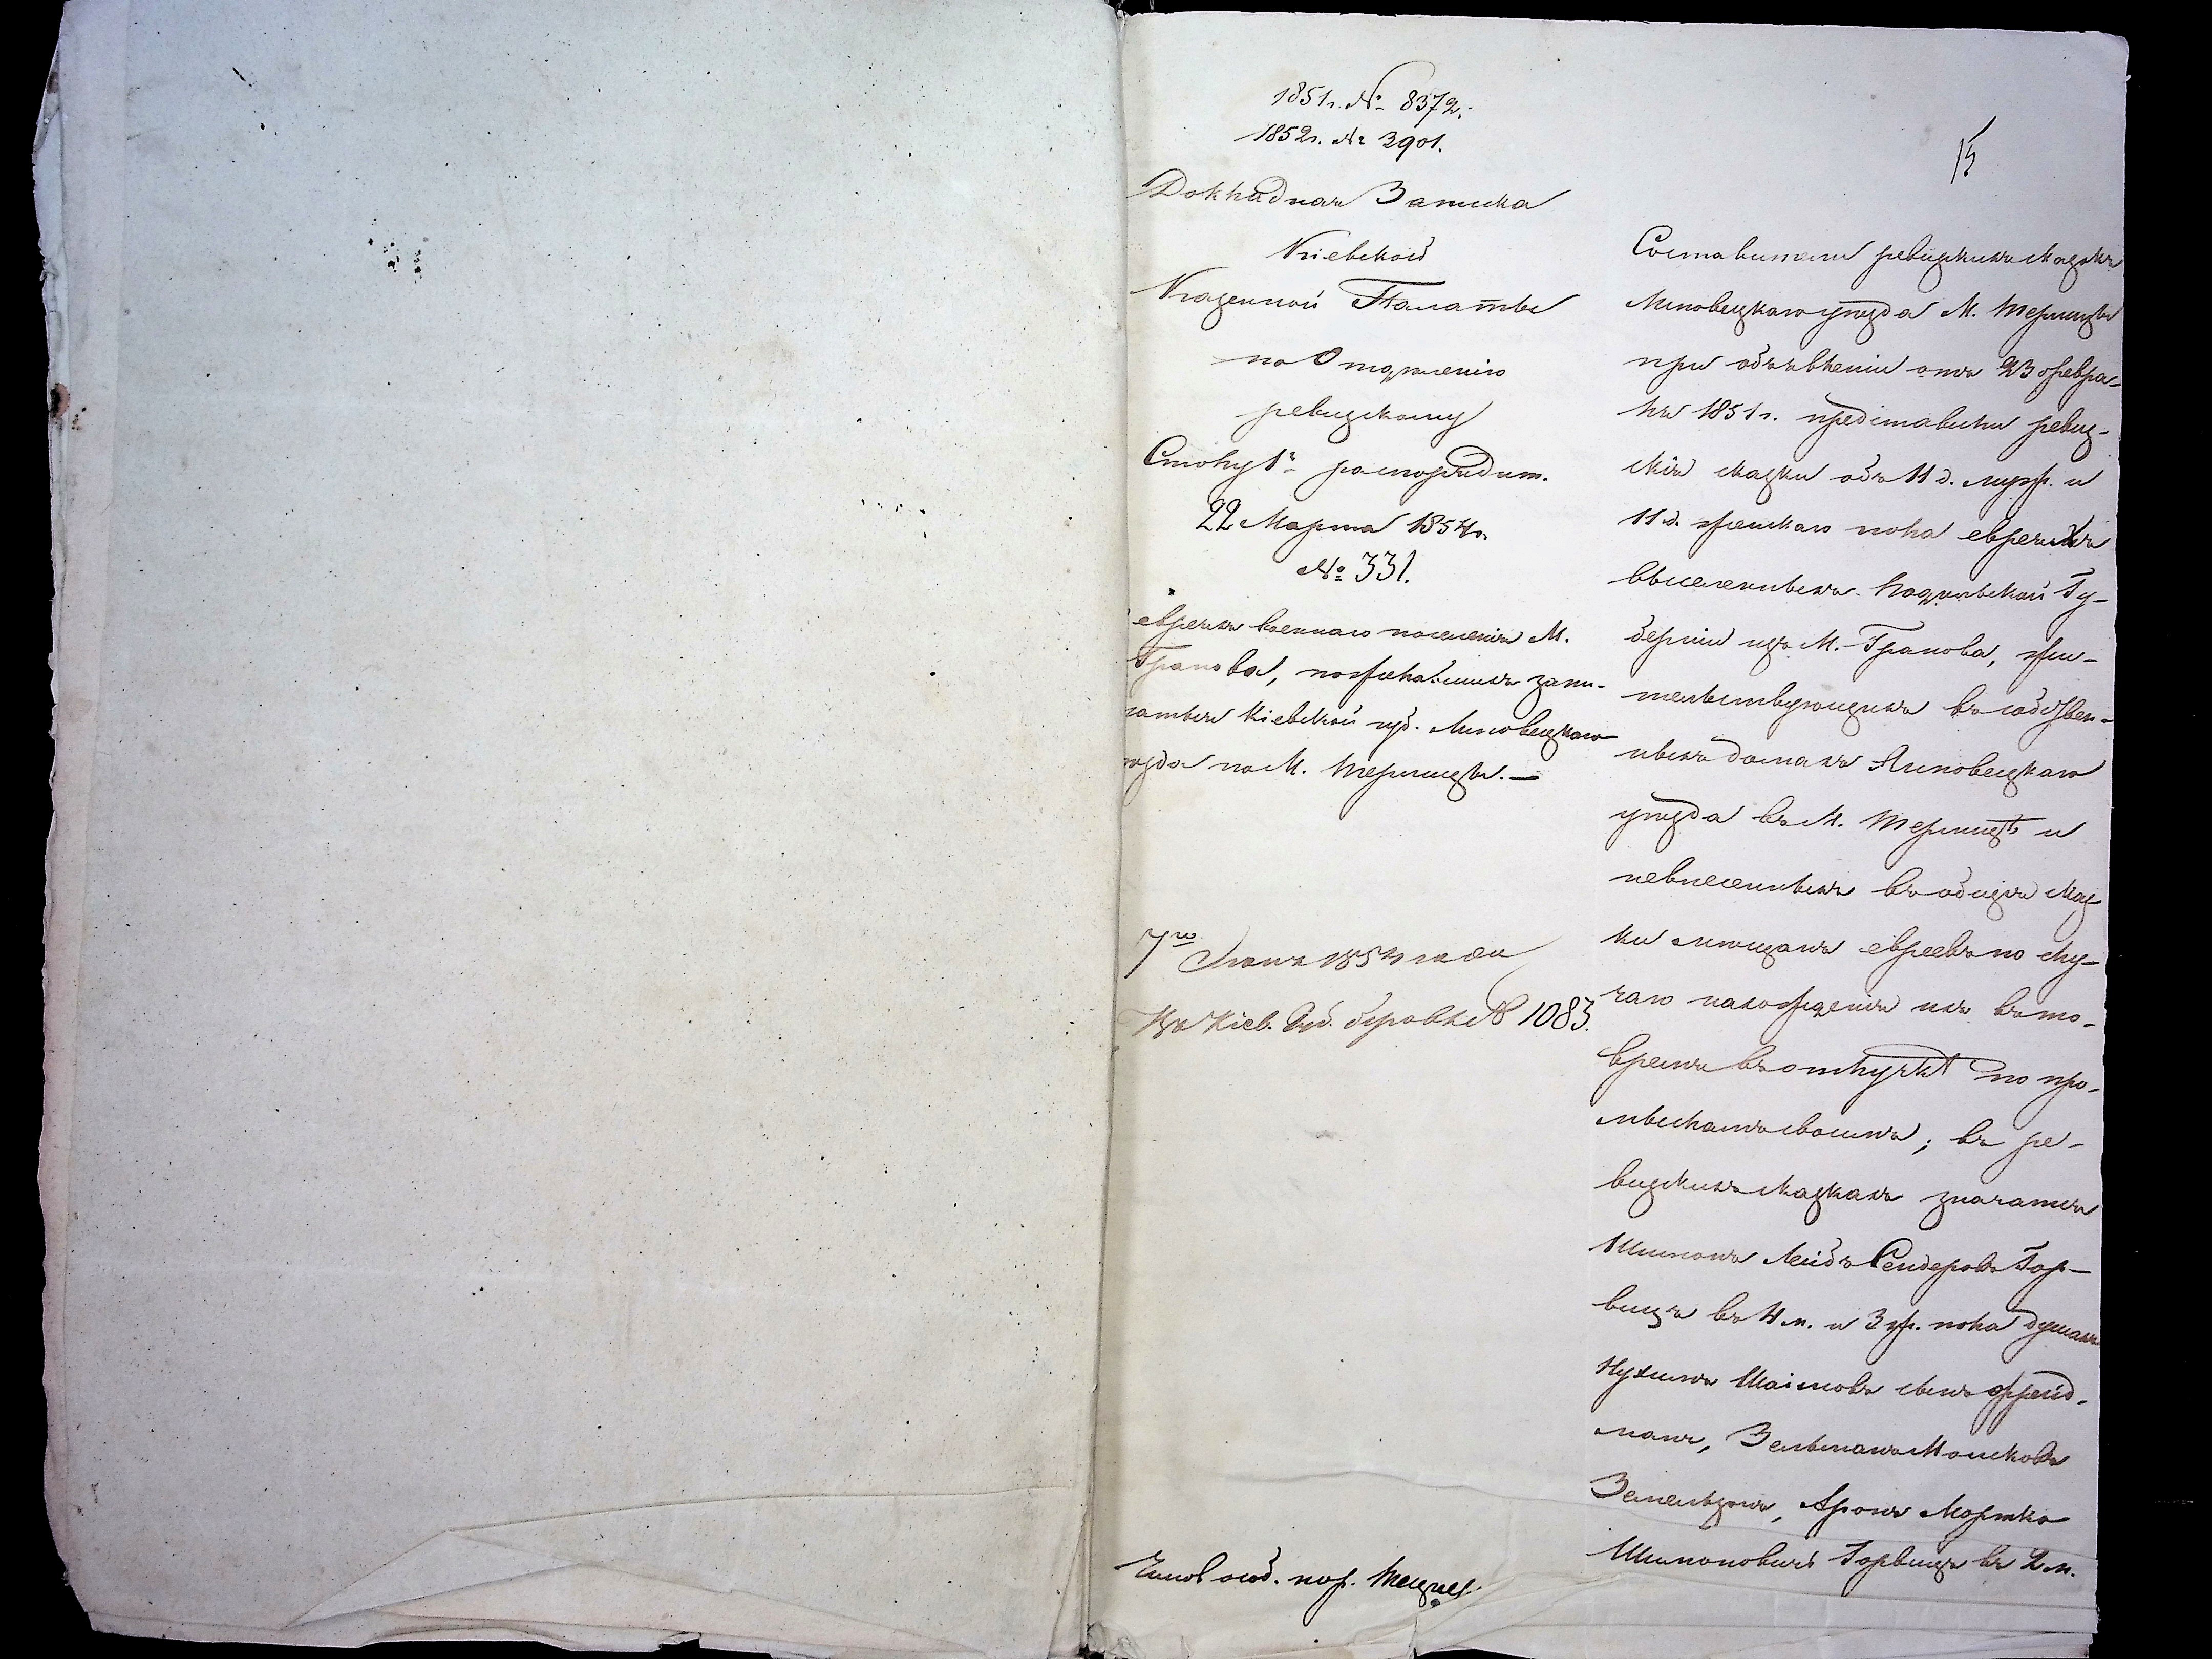 1851г. № 8372.
1852г. № 3901.
15
Докладная Записка
Кіевской
Казенной Палаты
по Отдѣленію
ревизскому
Столу 1º распорядит.
22 Марта 1854г.
№ 331.
евреяхъ военнаго поселенія М.
Гранова, пожелавшихъ запи-
саться Кіевской губ. Липовецкаго
уѣзда по М. Терлицѣ. —
7го Іюня 1854 года
Изъ Кіев. Губ. № 1083.
Чинов. особ. пор.
Составители ревизскихъ сказокъ
Липовецкаго уѣзда М. Терлицы
при объявленіи отъ 23 Февра-
ля 1851 г. представили ревиз-
скія сказки объ 11 д. муж. и
11 д. женскаго пола евреяхъ
вышедшихъ Подольской Гу-
берніи изъ М. Гранова, жи-
тельствующихъ въ собствен-
ныхъ домахъ Липовецкаго
уѣзда въ М. Терлицѣ и
невнесенныхъ въ общія сказ-
ки мѣщанъ евреевъ по слу-
чаю нахожденія ихъ въ то-
время въ отлучкѣ по про-
мысламъ своимъ; въ ре-
визскихъ сказкахъ значатся
Шимонъ Лейбъ Сендеровъ Гор-
вицъ въ 4 м. и 3 ж. пола душахъ
Нухимъ Шаімовъ сынъ Фрейд-
манъ, Зельманъ Мошковъ
Земельзонъ, Аронъ Мортко
Шимоновичъ Горвицъ въ 2 м.